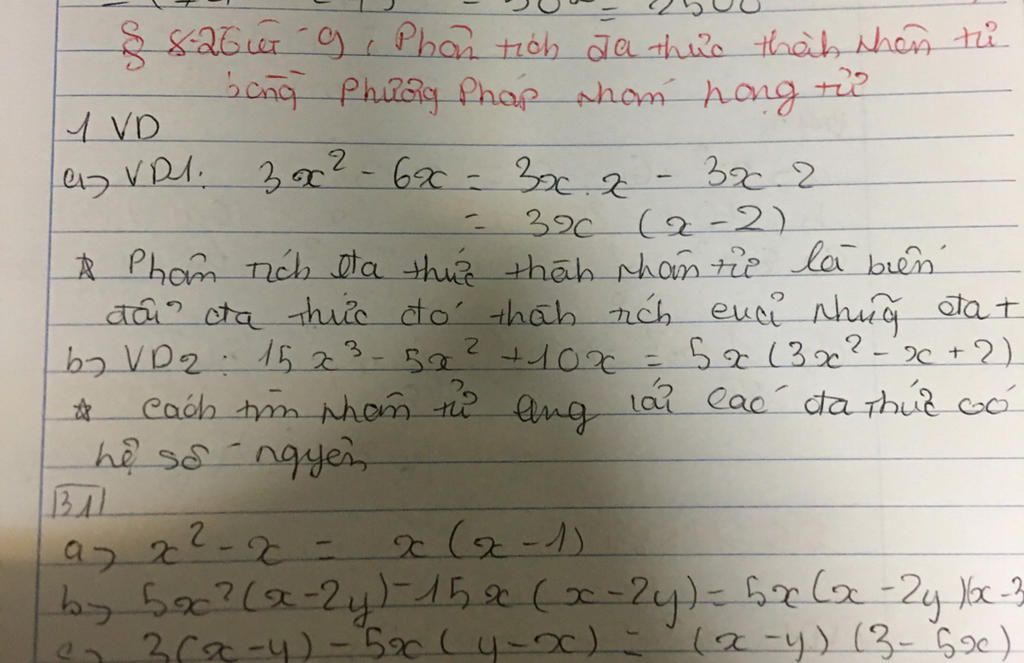 = 2500
Phân tích đa thức thành nhân tử
bằng phương pháp nhóm hạng tử
1 VD
a) VD1: 3x² - 6x = 3x . x - 3x . 2
= 3x (x - 2)
* Phân tích đa thức thành nhân tử là biến
đổi đa thức đó thành tích của những đa t
b) VD2 : 15x³ - 5x² + 10x = 5x (3x² - x + 2)
* Cách tìm nhân tử các đa thức có
hệ số nguyên
?1
a) x² - x = x (x - 1)
b) 5x² (x - 2y) - 15x (x - 2y) = 5x (x - 2y)(x - 3
c) 3(x - y) - 5x (y - x) = (x - y) (3 - 5x)